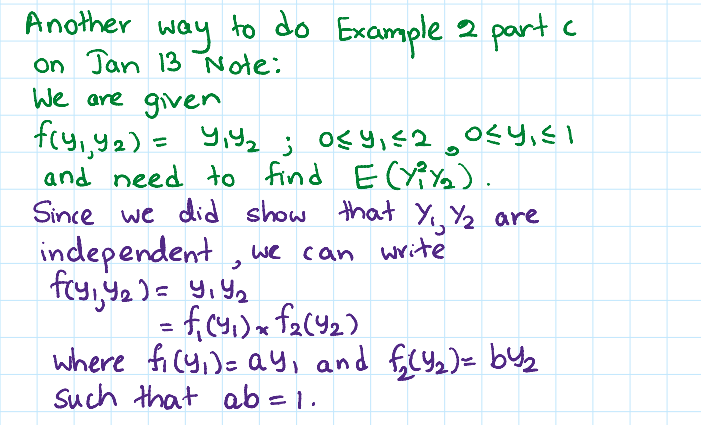 Another way to do Example 2 part c
on Jan 13 Note:
We are given
f(y₁,y₂) = y₁y₂ ; 0≤y₁≤2 , 0≤y₁≤1
and need to find E(Y₁²Y₂).
Since we did show that Y₁, Y₂ are
independent, we can write
f(y₁,y₂) = y₁y₂
= f₁(y₁) × f₂(y₂)
where f₁(y₁) = ay₁ and f₂(y₂) = by₂
such that ab = 1.